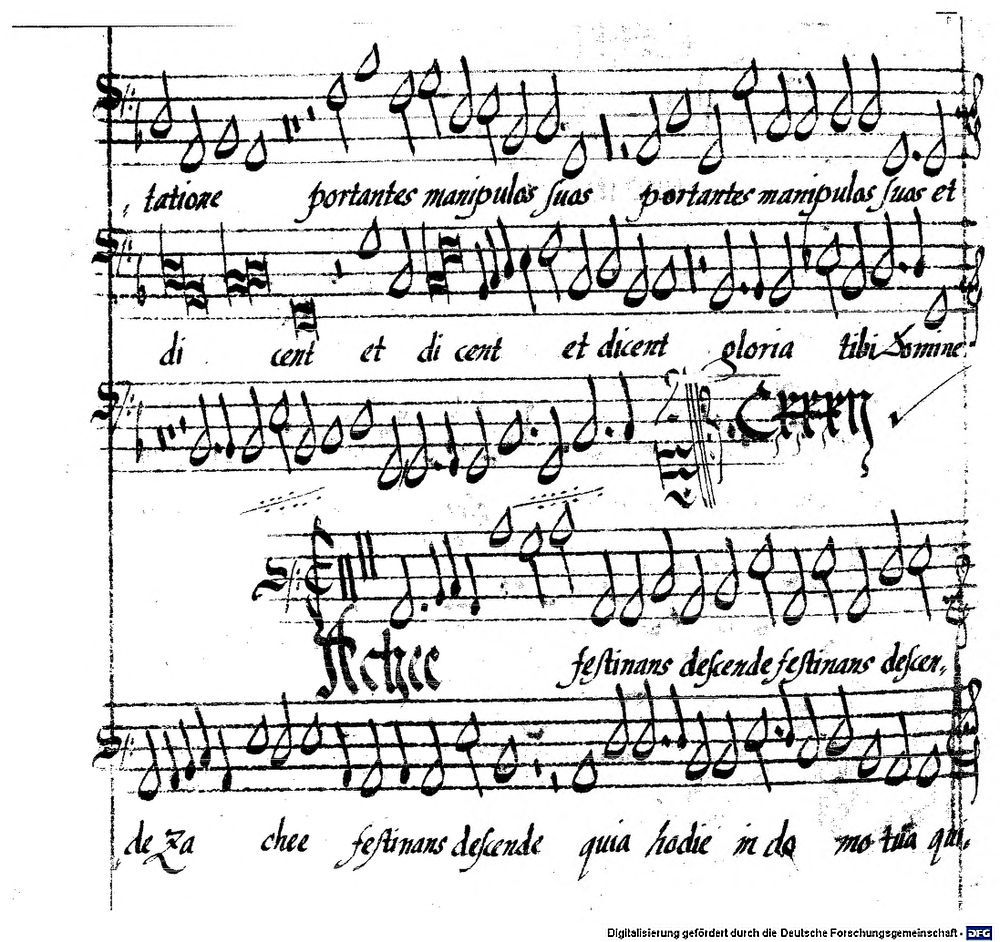 tatione portantes manipulos suos portantes manipulos suos et
di cent et di cent et dicent gloria tibi Domine
Achee
festinans descende festinans descen,
de Za chee festinans descende quia hodie in do mo tua qui,
Digitalisierung gefördert durch die Deutsche Forschungsgemeinschaft - DFG